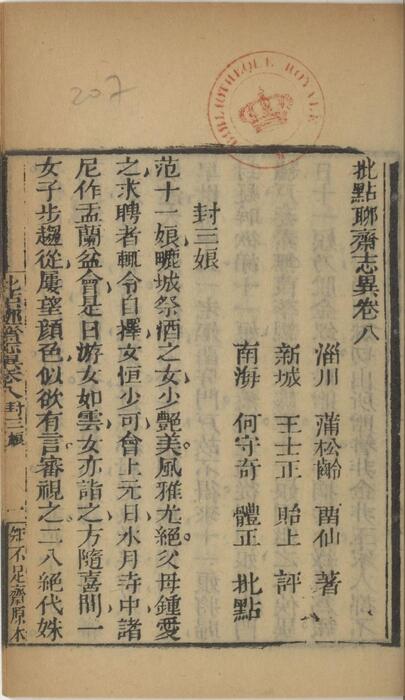 207
BIBLIOTHEQUE ROYALE
批點聊齋志異卷八
淄川 蒲松齡 畱仙 著
新城 王士正 貽上 評
南海 何守奇 體正 批點
封三娘
范十一娘㽯城祭酒之女少艷美風雅尤絕父母鍾愛
之求聘者輒令自擇女恒少可會上元日水月寺中諸
尼作盂蘭盆會是日游女如雲女亦詣之方隨喜間一
女子步趨從屢望顏色似欲有言審視之二八絕代姝
批點聊齋志異卷八 封三娘 一 知不足齋原本